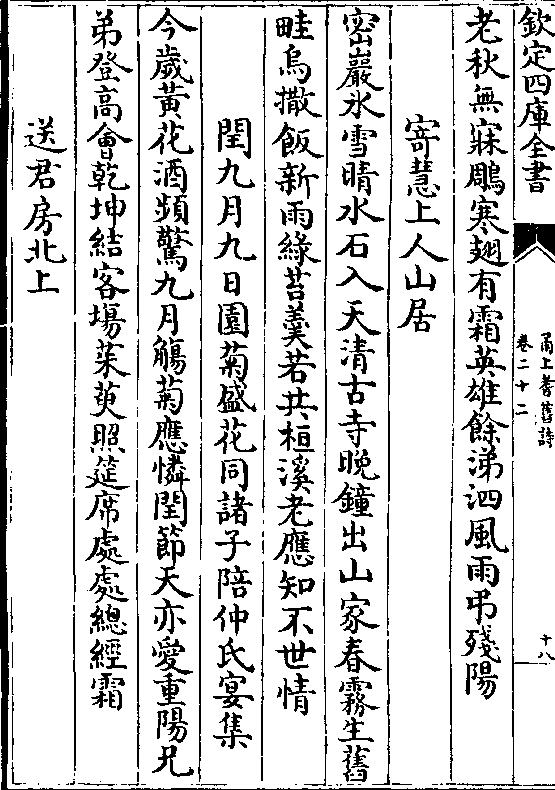 欽定四庫全書
甬上耆舊詩
卷二十二
十八
老秋無寐鵰寒翅有霜英雄餘涕泗風雨弔殘陽
寄慧上人山居
密巖氷雪晴水石入天清古寺晩鐘出山家春霧生舊
畦烏撒飯新雨緣苔羮若共桓溪老應知不世情
閏九月九日園菊盛花同諸子陪仲氏宴集
今歲黃花酒頻驚九月觴菊應憐閏節天亦愛重陽兄
弟登高會乾坤結客塲茱萸照筵席處處總經霜
送君房北上